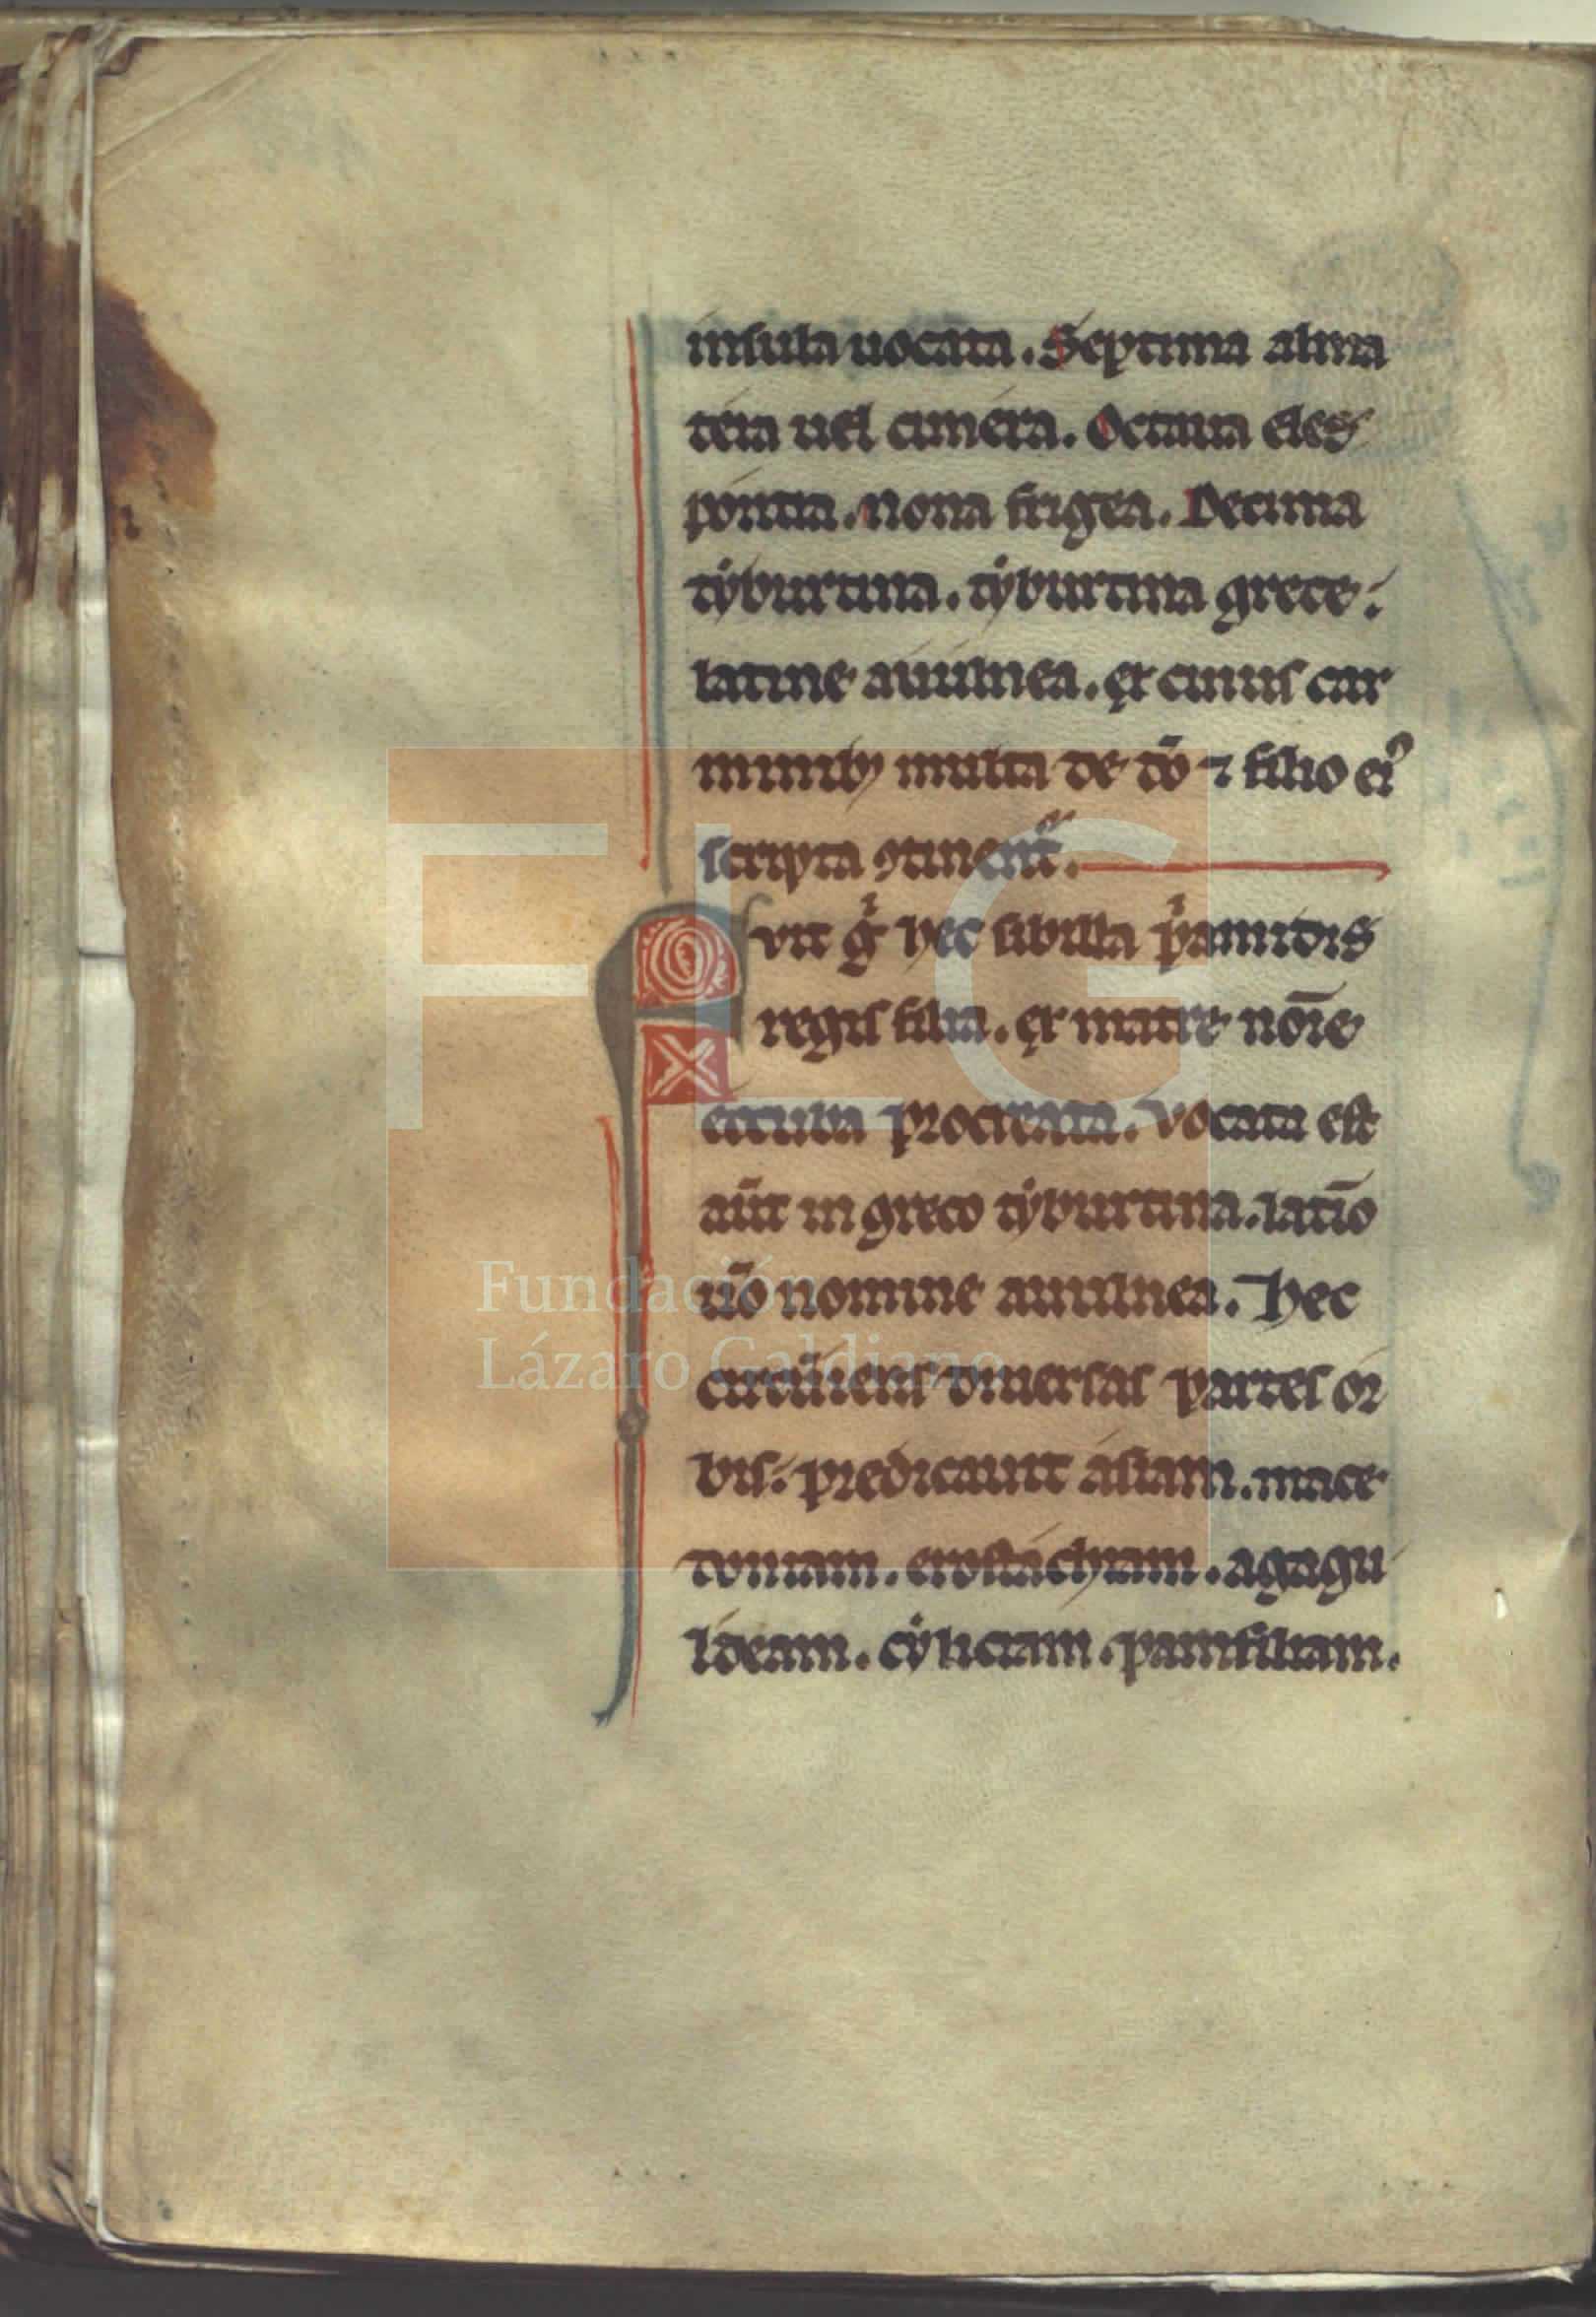 insula uocata. Septima alma
tea uel cimera. Octaua eles
pontia. nona frigea. Decima
tyburtina. tyburtina grece:
latine auulnea. et cuius car
minib; multa de do ⁊ filio eiꝰ
scripta ꝯtinent᷑.
Fvit gͥ hec sibilla pͥamidis
regis filia. et matre no᷑ie
eccuba procreata. vocata est
aūt in greco tyburtina. latīo
uō nomine auulnea. hec
circūiens diuersas partes or
bis. predicauit asiam. mace
doniam. erostachyam. agagu
ldeam. cyliciam. pamfiliam.
FLG
Fundación
Lázaro Galdiano